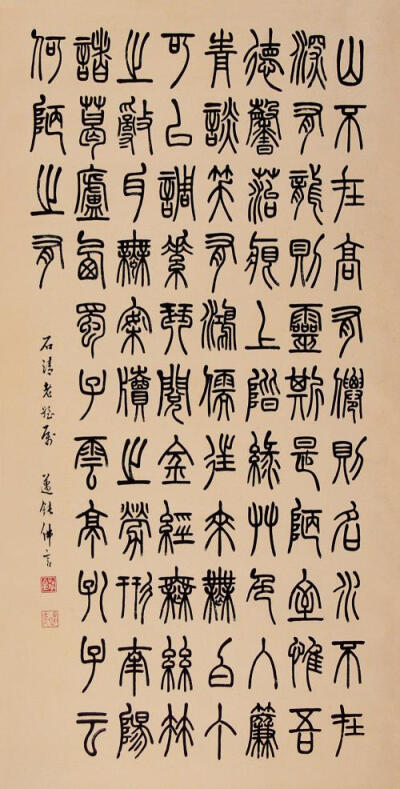 山不在高有僊則名水不在
深有龍則靈斯是陋室惟吾
德馨苔痕上階綠艸色入簾
青談笑有鴻儒往來無白丁
可以調素琴閱金經無絲竹
之亂耳無案牘之勞形南陽
諸葛廬西蜀子雲亭孔子云
何陋之有
石清老姪屬